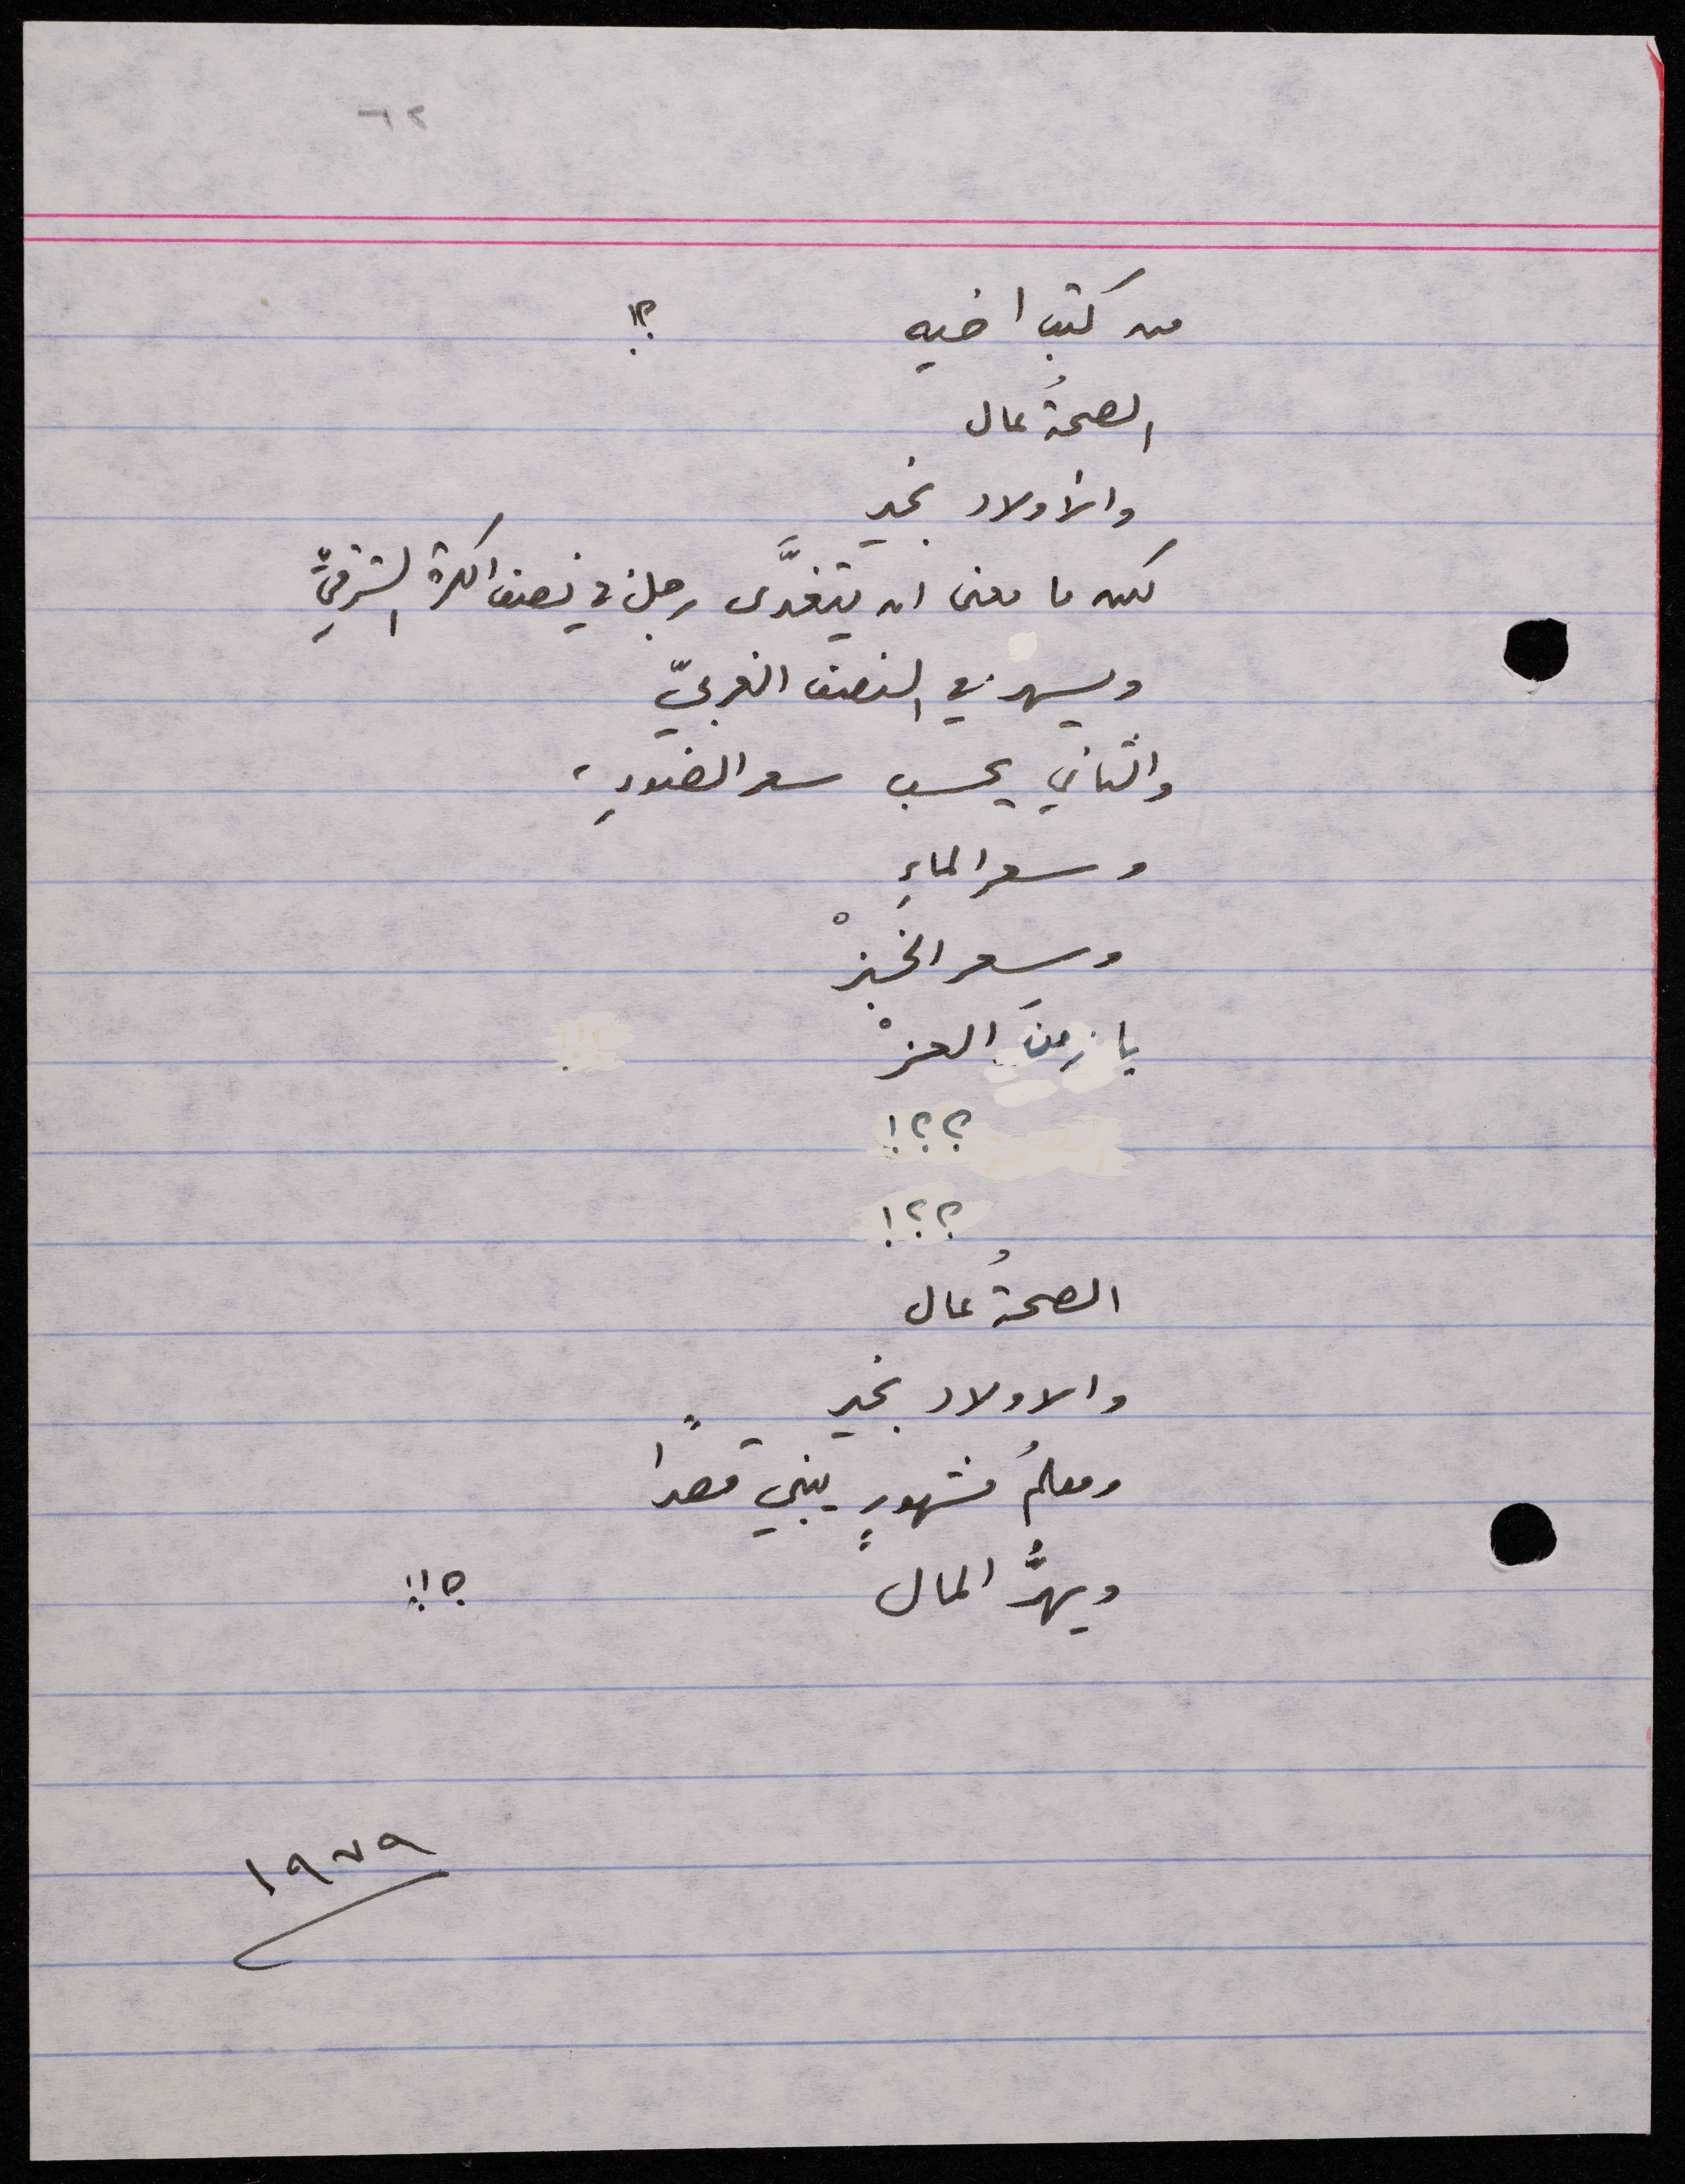 من كتب اخيه ؟!
الصحةُ عال
والأولاد بخير
لكن ما معنى ان يتغدَّى رجلٌ في نصف الكرة الشرقيِّ
ويسهر في النصف الغربيّ
والثاني يحسب سعر الضوءِ،
وسعر الماءِ
وسعر الخبزْ
يا زمنَ العزْ
؟؟!
؟؟!
الصحةُ عال
والاولاد بخير
ومعلمُ مشهورٍ يبني قصرًا
ويهرُّ المال ؟!!
١٩٧٩